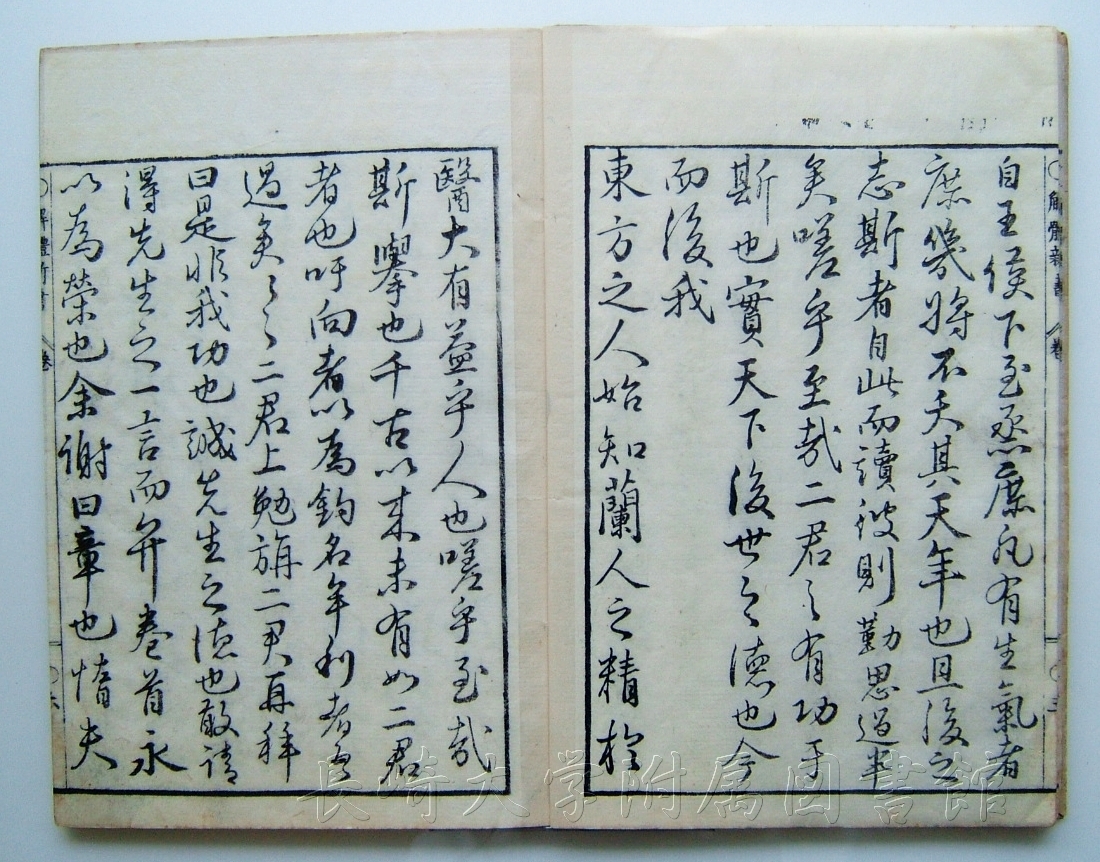 解體新書 卷
自王侯下至烝庶凡有生氣者
庶幾將不夭其天年也且後之
志斯者自此而讀彼則勤思過半
矣嗟乎至哉二君之有功于
斯也實天下後世之德也今
而後我
東方之人始知蘭人之精於
醫大有益乎人也嗟乎至哉
斯擧也千古以來未有如二君
者也吁向者以爲釣名牟利者吾
過矣々々二君上勉旃二君再拜
曰是非我功也誠先生之德也敢請
得先生之一言而弁卷首永
以爲榮也余謝曰章也惰夫
解體新書 卷
長崎大学附属図書館